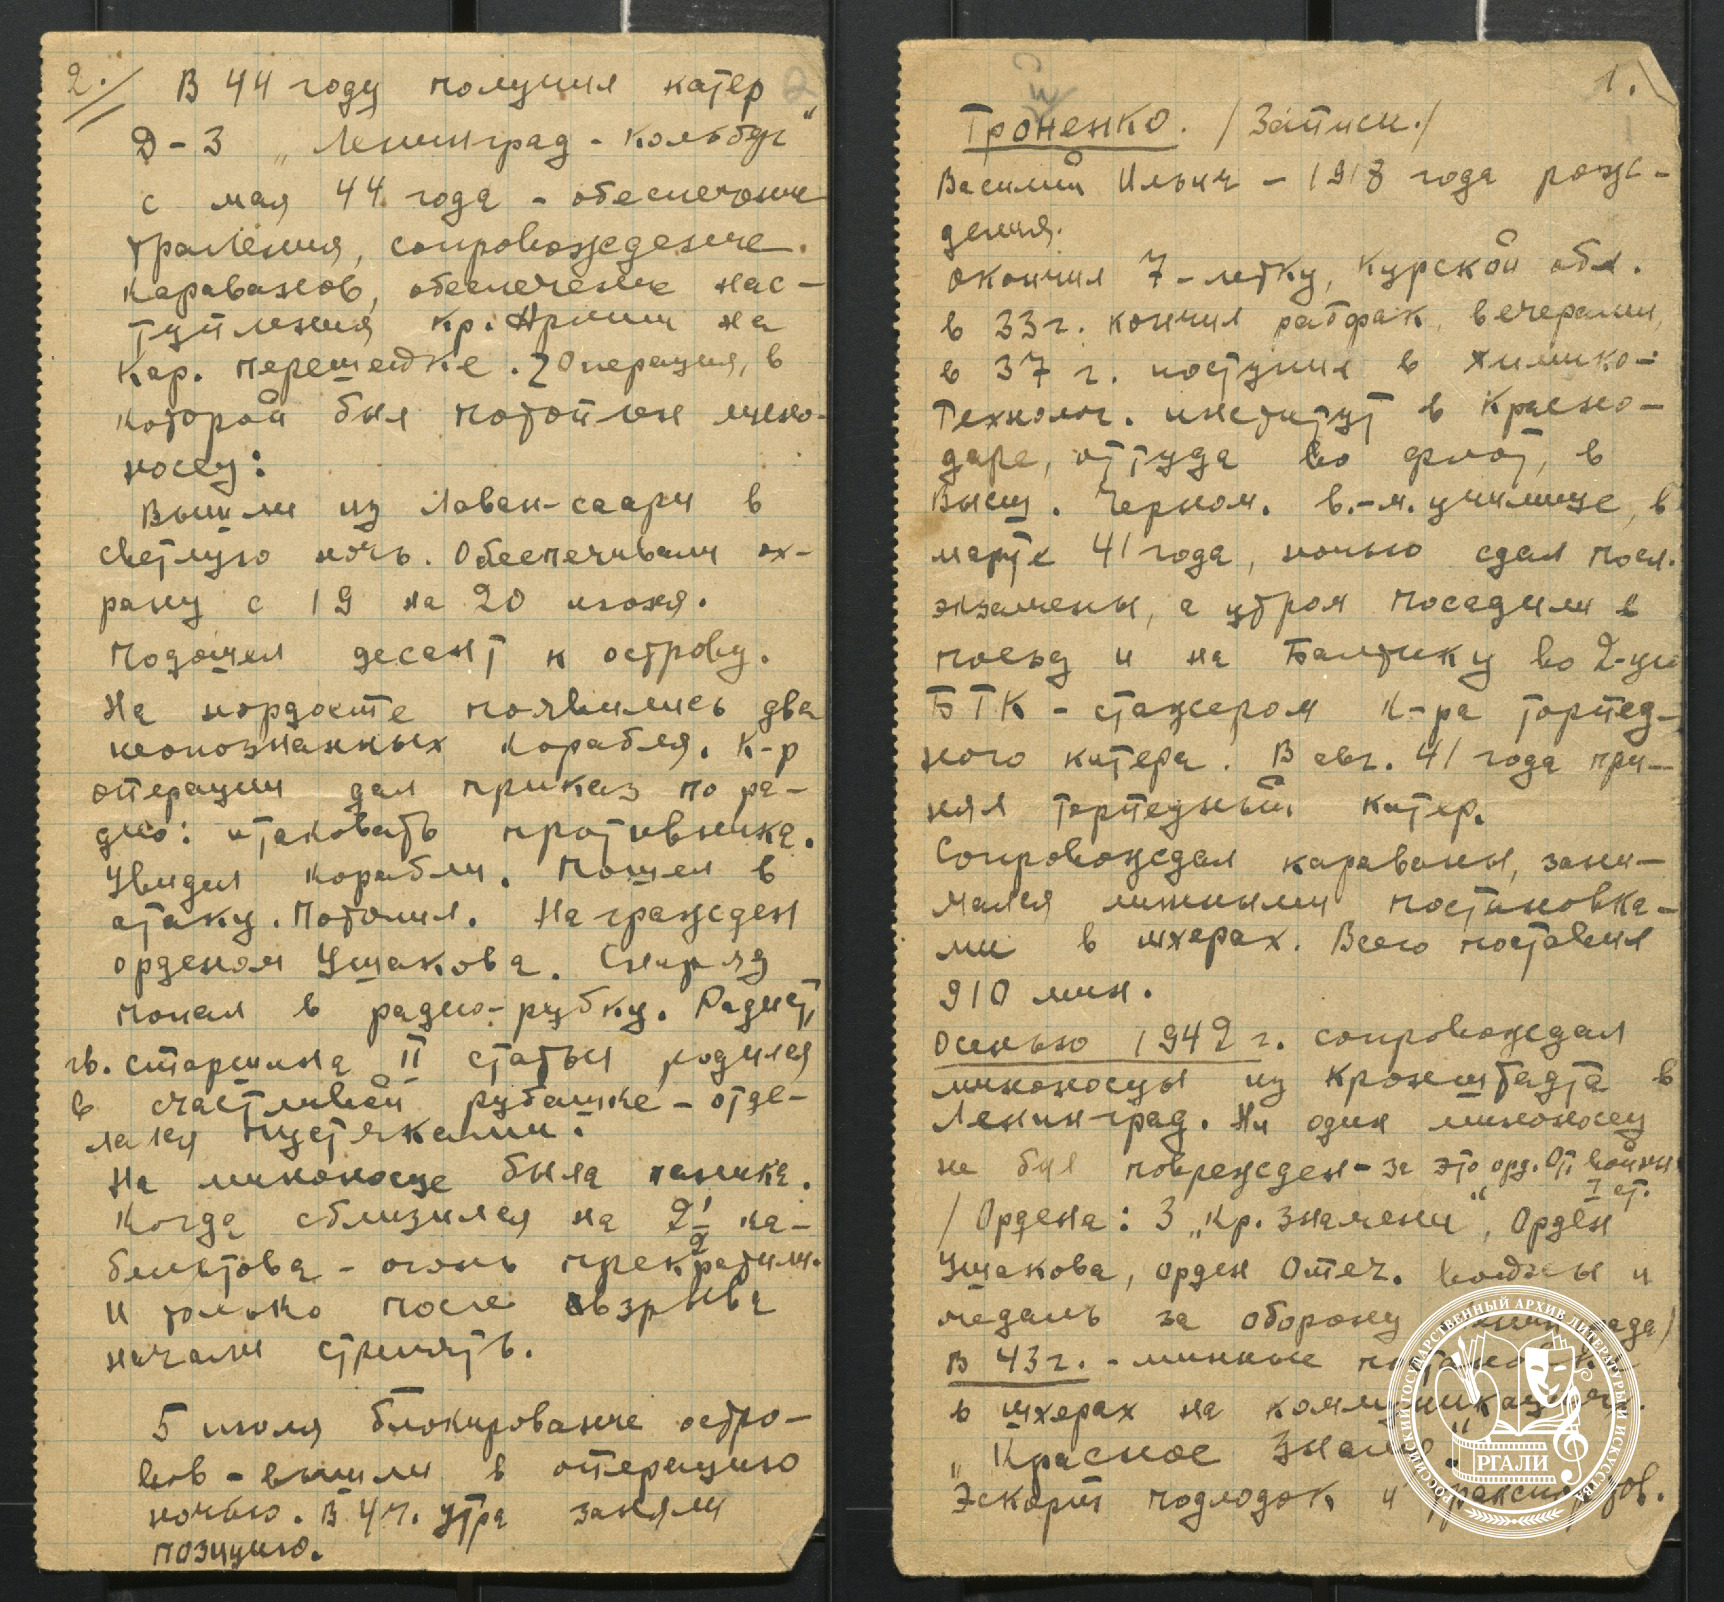 1.
Троненко. /Записи./
Василий Ильич - 1918 года рож-
дения.
окончил 7-летку, Курской обл.
в 33 г. кончил рабфак, вечерами,
в 37 г. поступил в химико-
технолог. институт в Красно-
даре, оттуда во флот, в
Высш. Черном. в.-м. училище, в
марте 41 года, ночью сдал посл.
экзамены, а утром посадили в
поезд и на Балтику во 2-ую
БТК - стажером к-ра торпед-
ного катера. В авг. 41 года при-
нял торпедный катер.
Сопровождал караваны, зани-
мался минными постановка-
ми в шхерах. Всего поставил
910 мин.
Осенью 1942 г. сопровождал
миноносцы из Кронштадта в
Ленинград. Ни один миноносец
не был поврежден - за это орд. От. войны
I ст.
/Ордена: 3 „Кр. Знамени", Орден
Ушакова, орден Отеч. войны и
медаль за оборону Ленинграда/
В 43 г. - минные постановки
в шхерах на коммуникациях.
„Красное Знамя".
Эскорт подлодок и транспортов.
РОССИЙСКИЙ ГОСУДАРСТВЕННЫЙ АРХИВ ЛИТЕРАТУРЫ И ИСКУССТВА
РГАЛИ
2.
В 44 году получил катер
Д-3 „Ленинград - Кольбер"
с мая 44 года - обеспечение
траления, сопровождение.
караванов, обеспечение нас-
тупления Кр. Армии на
Кар. перешейке. Операция, в
которой был потоплен мино-
носец:
Вышли из Лавен-саари в
светлую ночь. Обеспечивали ох-
рану с 19 на 20 июня.
Подошел десант к острову.
На нордосте появились два
неопознанных корабля. К-р
операции дал приказ по ра-
дио: атаковать противника.
Увидел корабли. Пошел в
атаку. Потопил. Награжден
орденом Ушакова. Снаряд
попал в радио-рубку. Радист,
гв. старшина II статьи родился
в счастливой рубашке - отде-
лался пустяками.
На миноносце была паника.
Когда сблизился на 2 1/2 ка-
бельтова - огонь прекратили.
И только после взрыва
начали стрелять.
5 июля блокирование остро-
вов - вышли в операцию
ночью. В 4 ч. утра заняли
позицию.